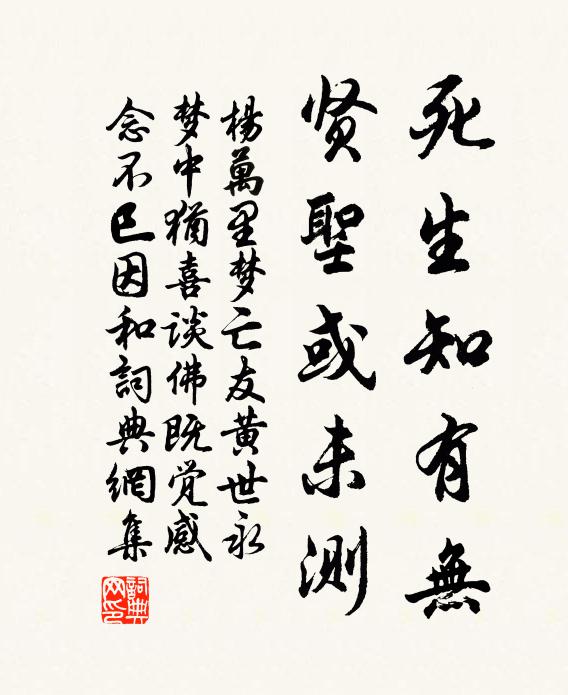 死生知有無
贤聖或未测
楊萬里梦亡友黄世永
梦中猶喜谈佛既觉感
念不已因和詞典網集
詞典
网印